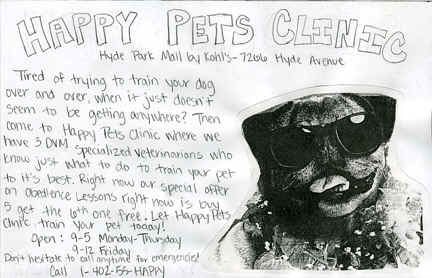 HAPPY PETS CLINIC
Hyde Park Mall by Kohl's - 7266 Hyde Avenue
Tired of trying to train your dog
over and over, when it just doesn't
seem to be getting anywhere? Then
come to Happy Pets Clinic where we
have 3 DVM specialized veterinarians who
know just what to do to train your pet
to it's best. Right now our special offer
on obedience lessons right now is buy
5 get the 6th one free. Let Happy Pets
Clinic train your pet today!
Open: 9-5 Monday-Thursday
9-12 Friday
Don't hesitate to call anytime for emergencies!
Call 1-402-55-HAPPY